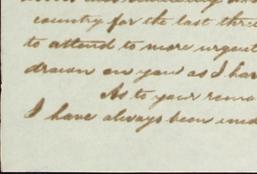 country for the last thre
to attend to more urgent
drawn on you as I hav
As to your rema
I have always been ind